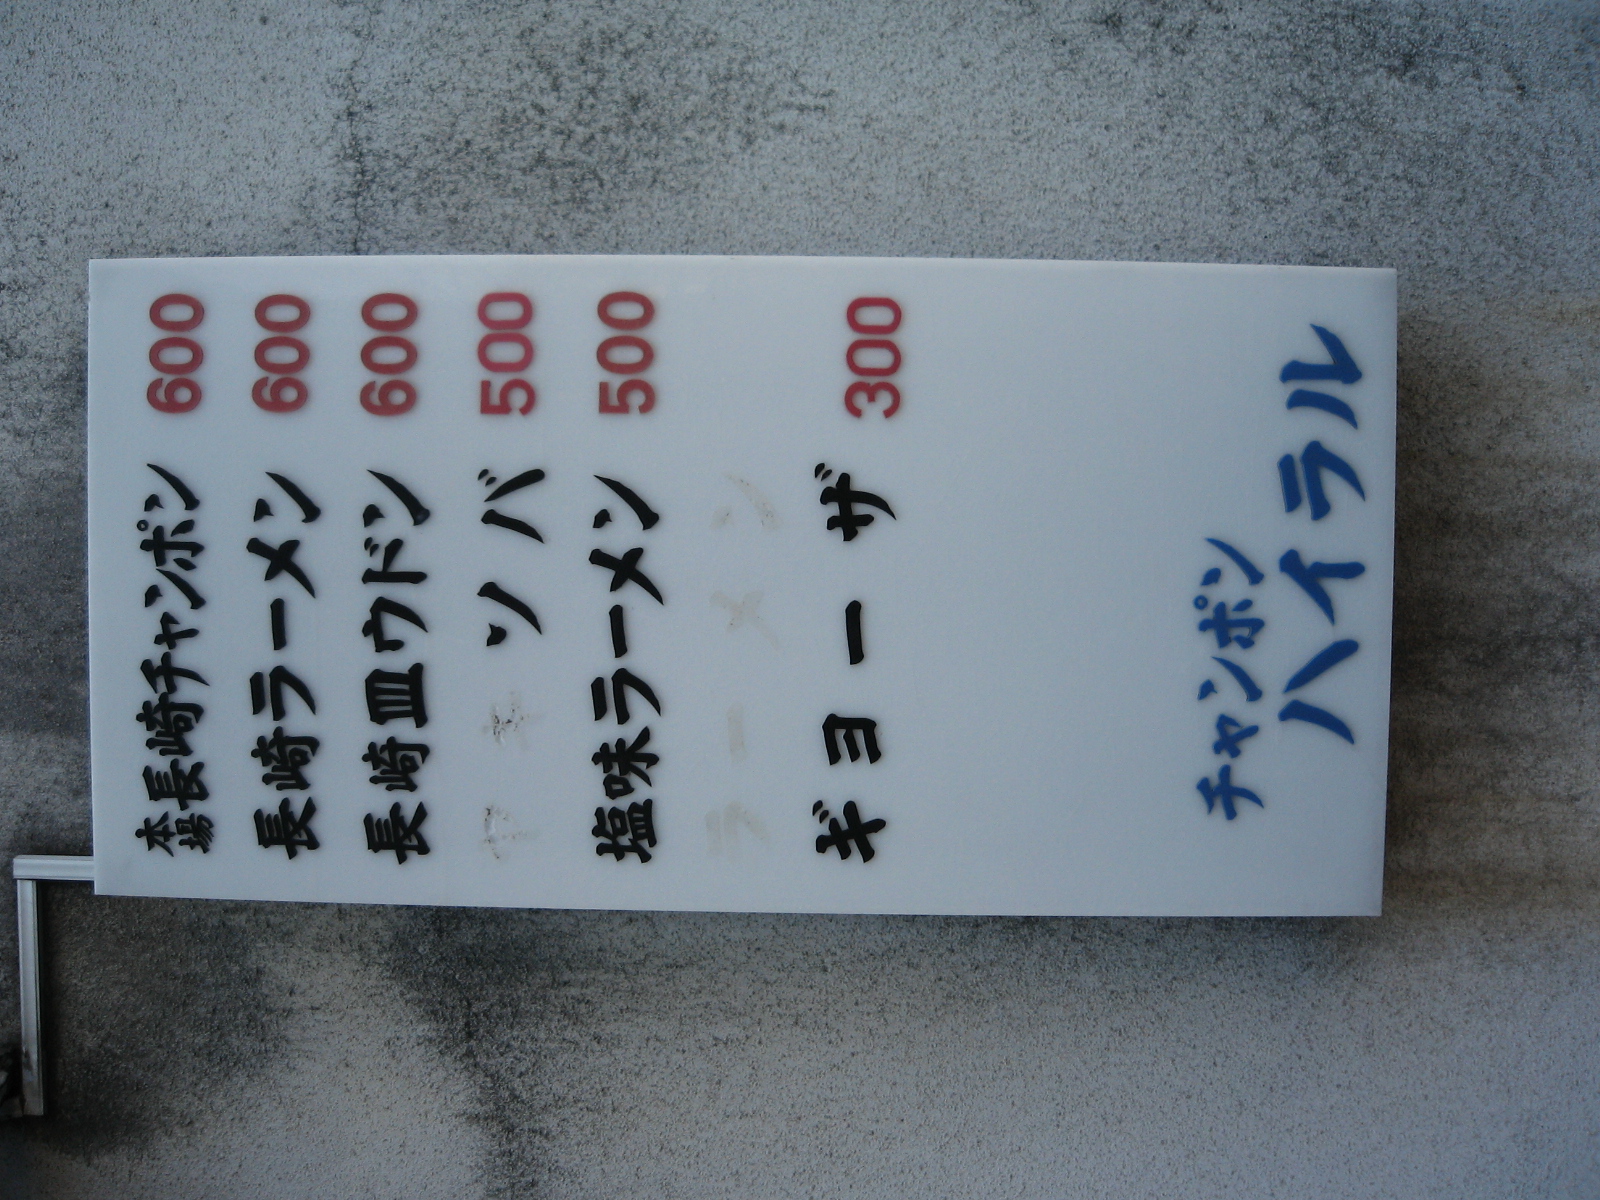 本場長崎チャンポン 600
長崎ラーメン 600
長崎皿ウドン 600
ヤキソバ 500
塩味ラーメン 500
ラーメン
ギョーザ 300
チャンポン
ハイラル